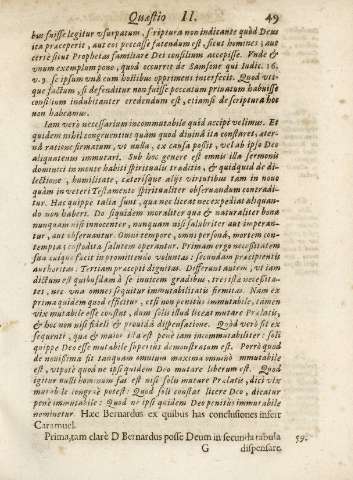 Quæstio II. 49
bus fuisse legitur usurpatum, scriptura non indicante quòd Deus
ita praeceperit, aut eos peccasse fatendum est, sicut homines; aut
certè sicut Prophetas familiare Dei consilium accepisse. Unde &
unum exemplum pono, quod occurrit de Samsone qui Iudic. 16.
v. 3. se ipsum unà cum hostibus opprimens interfecit. Quod uti-
que factum, si defenditur non fuisse peccatum privatum habuisse
consilium indubitanter credendum est, etiamsi de scriptura hoc
non habeamus.
Iam verò necessarium incommutabile quid accipi velimus. Et
quidem nihil congruentius quàm quod divinâ ita constaret, æter-
nâ ratione firmatum, ut nulla, ex causa possit, vel ab ipso Deo
aliquatenus immutari. Sub hoc genere est omnis illa sermonis
dominici in monte habiti spiritualis traditio, & quidquid de di-
lectione, humilitate, cæterisque aliis virtutibus tam in novo
quàm in veteri Testamento spiritualiter observandum contradi-
tur. Hæc quippe talia sunt, quæ nec liceat nec expediat aliquan-
do non haberi. Do siquidem moraliter quæ & naturaliter bona
nunquam nisi innocenter, nunquam nisi salubriter aut imperan-
tur, aut observantur. Omni tempore, omni personâ, mortem con-
tempta; custodita salutem operantur. Primam ergo necessitatem
sua cuique facit in promittendo voluntas: secundam præcipientis
authoritas: Tertiam præcepti dignitas. Differunt autem, ut iam
dictum est quibusdam à se invicem gradibus, tres istæ necessita-
tes, nec una omnes sequitur immutabilitatis firmitas. Nam ex
prima quidem quod efficitur, etsi non penitus immutabile, tamen
vix mutabile esse constat, dum solis illud liceat mutare Prælatis,
& hoc non nisi fideli & providâ dispensatione. Quòd verò sit ex
sequenti, quæ & maior ista est penè iam incommutabiliter: soli
quippe Deo esse mutabile superius demonstratum est. Porrò quod
de novissima fit tanquam omnium maxima omninò immutabile
est, utpotè quod ne ipsi quidem Deo mutare liberum est. Quod
igitur nulli hominum fas est nisi soli mutare Prælatis, dici vix mu-
tabile congruè potest: Quod soli constat licere Deo, dicatur
penè immutabile: Quod ne ipsi quidem Deo penitus immutabile
nominetur. Hæc Bernardus ex quibus has conclusiones infert
Caramuel.
Primam, tam clarè D Bernardus posse Deum in secunda tabula 59.
G dispensare.